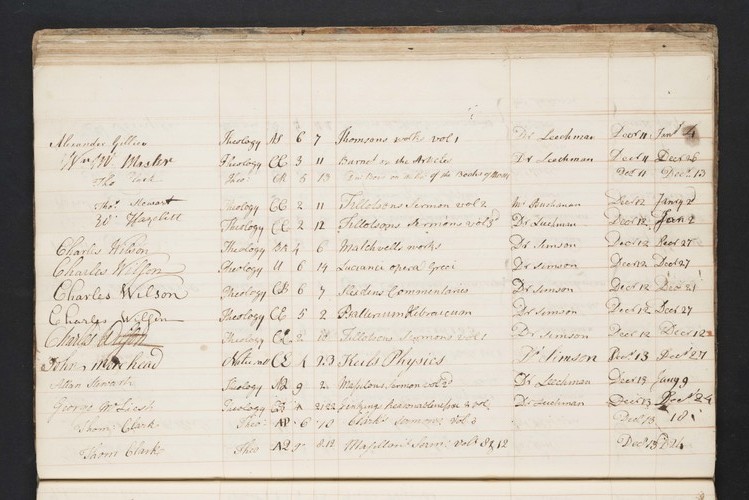 Alexander Gillies Theology AS 6 7 Thomsons works vol 1 Dr Leechman Decr 11 Janr 4
Wm Master Theology CC 3 11 Burnet on the Articles Dr Leechman Decr 11 Decr 26
Tho Theo CR 8 13 of the Books of Decr 11 Decr 13
Thos Stewart Theology CC 2 11 Tillotsons Sermon vol 2 Mr Buchanan Decr 12 Janry 2
Wm Hazlitt Theology CC 2 12 Tillotsons Sermons vol 3d Dr Leechman Decr 12 Janr 2
Charles Wilson Theology 4 6 works Dr Simson Decr 12 Decr 27
Charles Wilson Theology 6 14 Luciani opera Dr Simson Decr 12 Decr 27
Charles Wilson Theology CB 6 7 Sleidens Commentaries Dr Simson Decr 12 Decr 21
Charles Wilson Theology CC 5 2 Hebraicum Dr Simson Decr 12 Decr 27
Charles Wilson Theology CC 2 10 Tillotsons Sermons vol 1 Dr Simson Decr 12 Decr 12
John Morehead Natural CC 4 23 Keils Physics Dr Simson Decr 13 Decr 27
Allan Stewart Theology A2 9 2 Sermon vol 2d Dr Leechman Decr 13 Janry 9
George Mc Leish Theology 21.22 Jenkins Reasonableness 2 vol Dr Leechman Decr 13 Decr 24
Thom: Clark Theo: 6 18 Clark's Sermons Vol. Decr 13 18
Thom Clark Theo A2 9 8.12 Masillon's Serm: vols 8 & 12 Decr 13 D 24